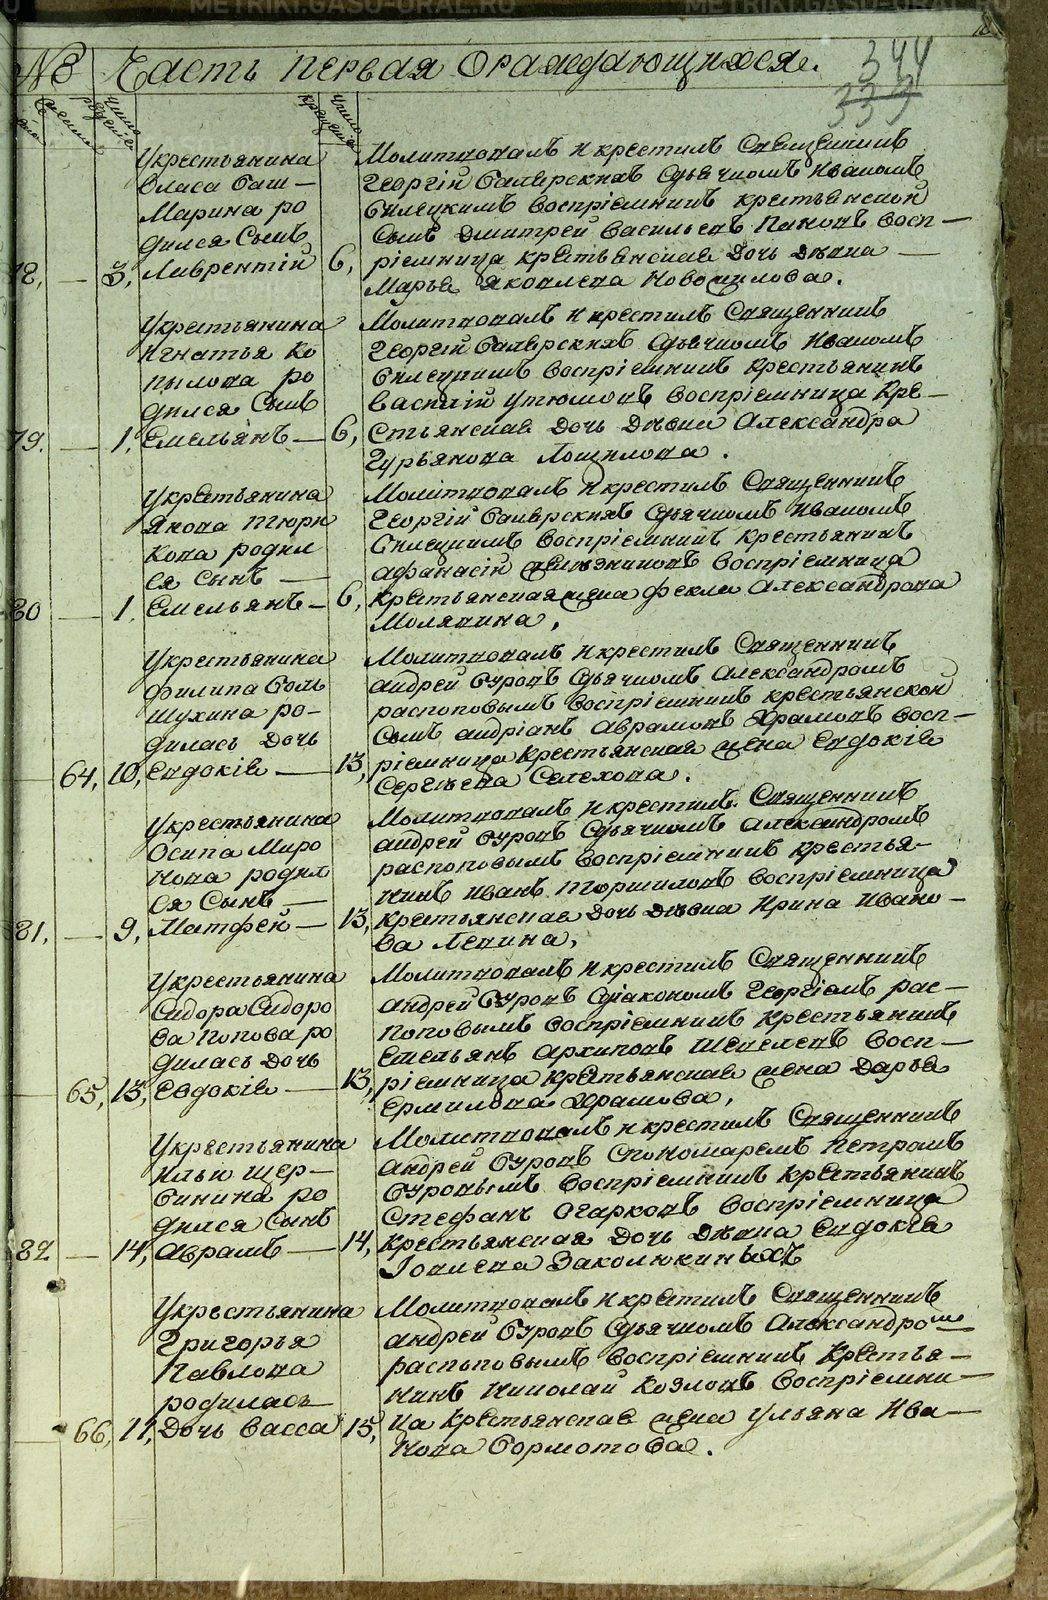 METRIKI.GASU-URAL.RU METRIKI.GASU-URAL.RU METRIKI.GASU-URAL.RU
№ Часть первая Ораждающихся.
344
333
число рождения
число крещения
Укрестьянина
Власа Баш-
Марина ро
дился Сынъ
78, — 3, Лаврентий 6,
Молитвовалъ и крестилъ Священникъ
Георгий Сдьячкомъ Иваномъ
Силецкимъ Восприемникъ крестьянской
Сынъ Дмитрей Васильевъ Пановъ Восп-
риемница крестьянская Дочь Девка —
Марья Яковлева Новоси лова.
Укрестьянина
Игнатья Ко
пылова ро
дился Сынъ
79. — 1, Емельянъ — 6,
Молитвовалъ и крестилъ Священникъ
Георгий Сдьячкомъ Иваномъ
Силецкимъ Восприемникъ Крестьянинъ
Василий Утюмовъ Восприемница Кре-
стьянская Дочь Девка Александра
Гурьянова Лощилова.
Укрестьянина
Якова Тюри
кова родил
ся Сынъ —
80 — 1. Емельянъ — 6,
Молитвовалъ и крестилъ Священникъ
Георгий Сдьячкомъ Иваномъ
Силецкимъ Восприемникъ Крестьянинъ
Афанасий Восприемница
Крестьянская жена Фекла Александрова
Молявина,
Укрестьянина
Филипа Боль
шухина ро-
дилась Дочь
64, 10, Евдокия — 13,
Молитвовалъ и крестилъ Священникъ
Андрей Суровъ Сдьячкомъ Александромъ
распоповымъ Восприемникъ крестьянской
Сынъ Андрианъ Аврамовъ Храмовъ Восп-
риемница Крестьянская жена Евдокия
Сергеева Селехова.
Укрестьянина
Осипа Миро
нова родил
ся Сынъ —
81, — 9, Матфей — 13,
Молитвовалъ и крестилъ Священникъ
Андрей Суровъ Сдьячкомъ Александромъ
распоповымъ Восприемникъ Крестья-
нинъ Иванъ Торшиловъ Восприемница
Крестьянская Дочь Девка Ирина Ивано-
ва Лепина,
Укрестьянина
Сидора Сидоро
ва Попова ро
дилась Дочь
65, 13, Евдокия — 13,
Молитвовалъ и крестилъ Священникъ
Андрей Суровъ Сдиакономъ Георгиемъ рас-
поповымъ Восприемникъ Крестьянинъ
Емельянъ Архиповъ Шевелевъ Восп-
риемница Крестьянская жена Дарья
Ермилова Храмова,
Укрестьянина
Ильи Щер-
бинина ро
дился Сынъ
82 — 14, Аврамъ — 14,
Молитвовалъ и крестилъ Священникъ
Андрей Суровъ Спономаремъ Петромъ
Суровымъ Восприемникъ Крестьянинъ
Стефанъ Огарковъ Восприемница
Крестьянская Дочь Девка Евдокия
Заколюкиныхъ
Укрестьянина
Григорья
Павлова
родилась
66, 11, Дочь Васса 15,
Молитвовалъ и крестилъ Священникъ
Андрей Суровъ Сдьячкомъ Александромъ
распоповымъ Восприемникъ Крестья-
нинъ Николай Козловъ Восприемни-
ца Крестьянская жена Ульяна Ива-
нова Бормотова.
METRIKI.GASU-URAL.RU METRIKI.GASU-URAL.RU METRIKI.GASU-URAL.RU